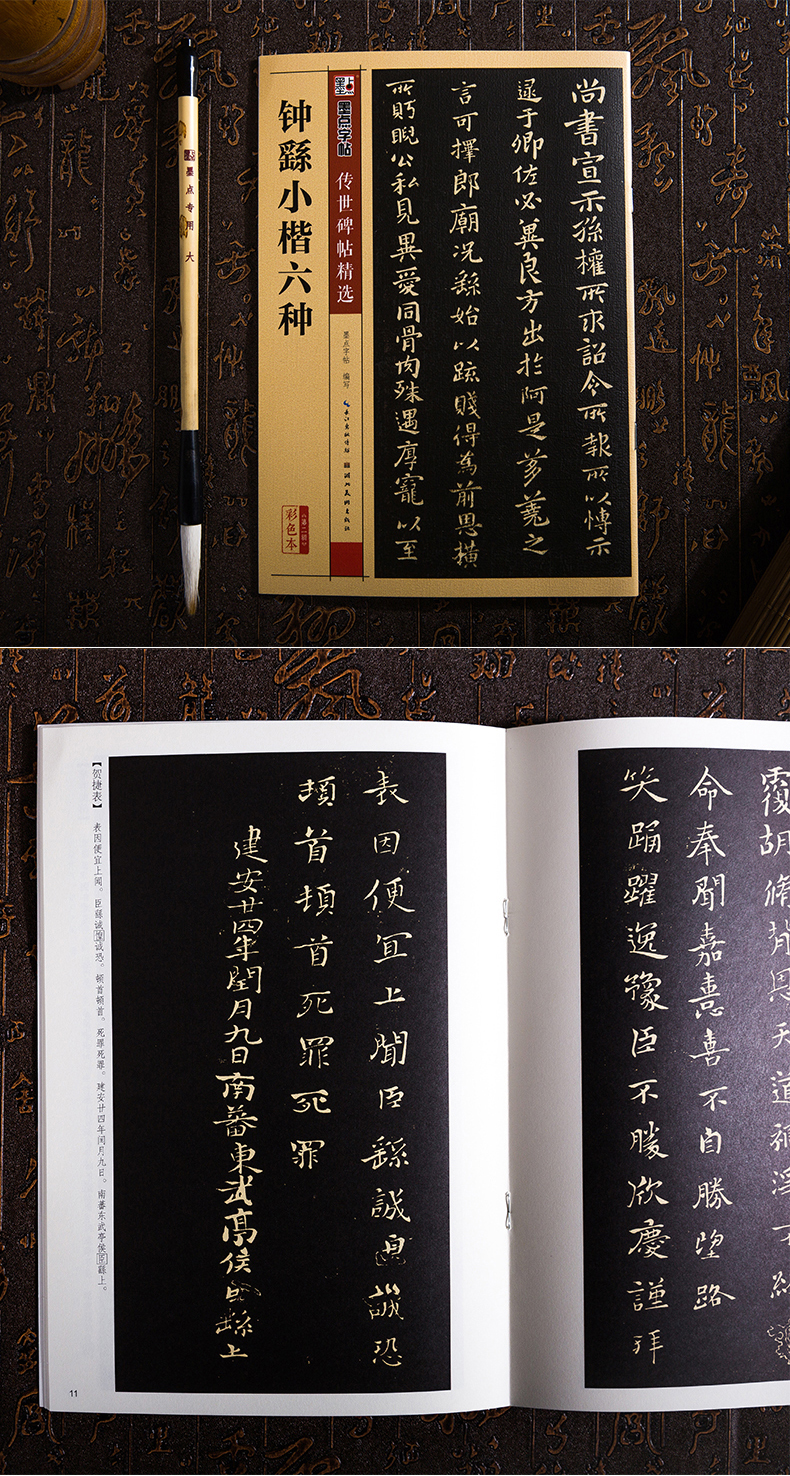 墨点专用 大
尚书宣示孫權所求詔令所報所以博示
逮于卿佐必冀良方出於阿是芻蕘之
言可擇郎廟況繇始以疏賤得為前恩橫
所眄睨公私見異愛同骨肉殊遇厚寵以至
墨点
墨点字帖
传世碑帖精选
墨点字帖 编写
长江出版传媒 湖北美术出版社
钟繇小楷六种
彩色本
《第二辑》
命奉聞嘉憙喜不自勝望路
笑踊躍逸豫臣不勝欣慶謹拜
表因便冝上聞臣繇誠
誠恐
頓首頓首死罪死罪
建安廿四年閏月九日南蕃東武亭侯臣繇上
【贺捷表】
表因便宜上闻。臣繇诚惶诚恐。顿首顿首。死罪死罪。建安廿四年闰月九日。南蕃东武亭侯臣繇上。
11